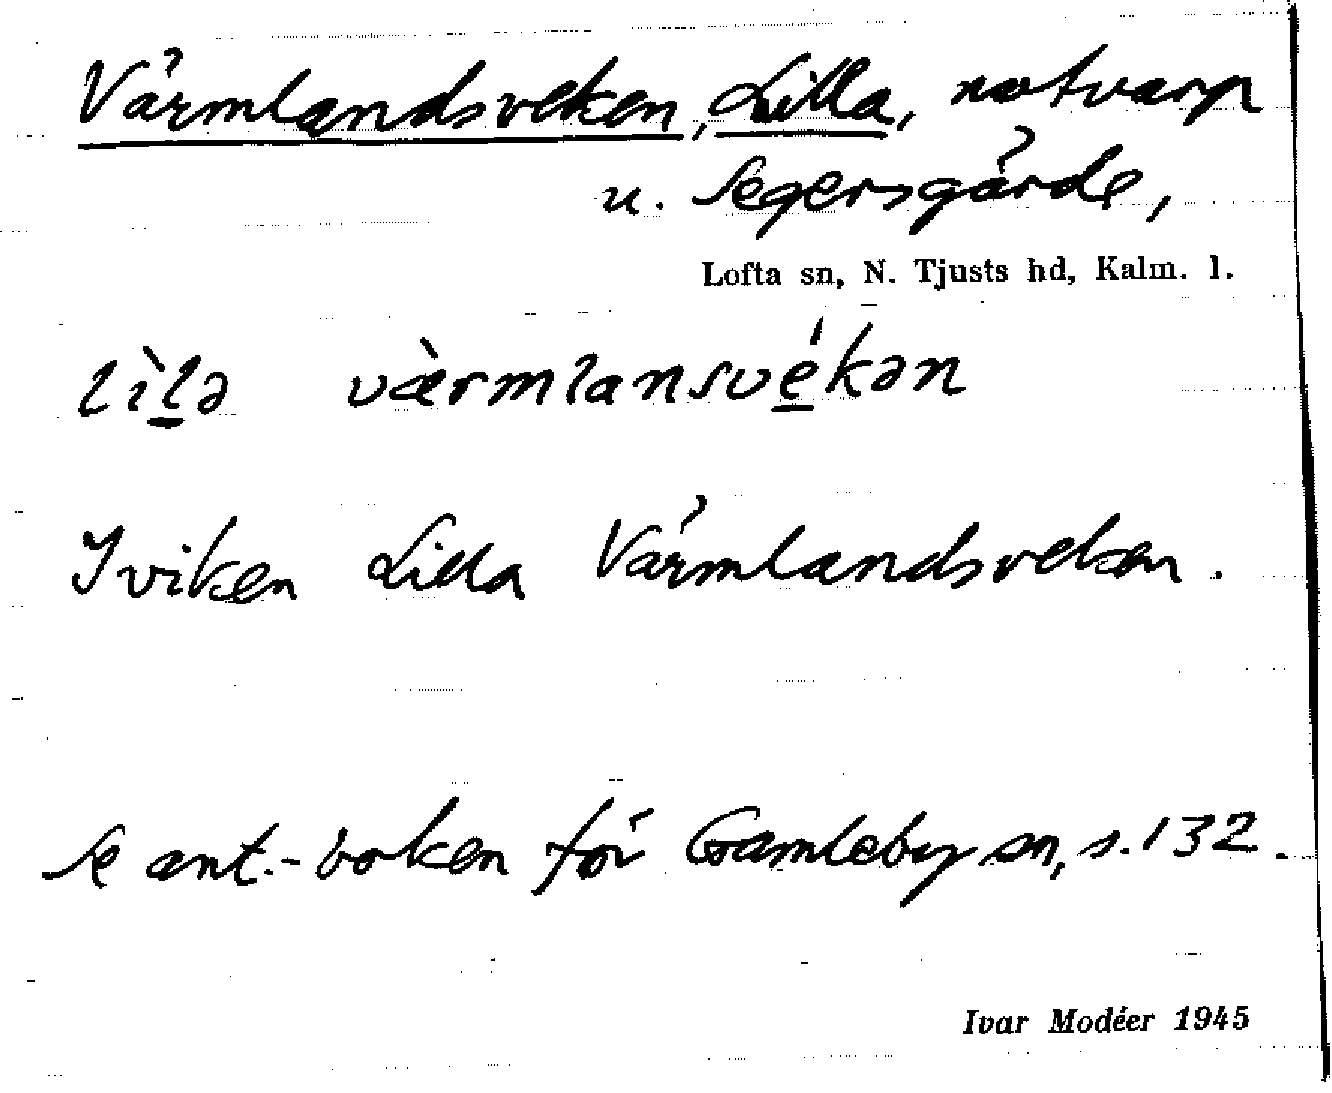 Värmlandsveken, Lilla, notvarp
u. Segersgärde,
Lofta sn, N. Tjusts hd, Kalm. l.
lìlə værmlansvékən
I viken Lilla Värmlandsveken.
Se ant.-boken för Gamleby sn, s. 132.
Ivar Modéer 1945